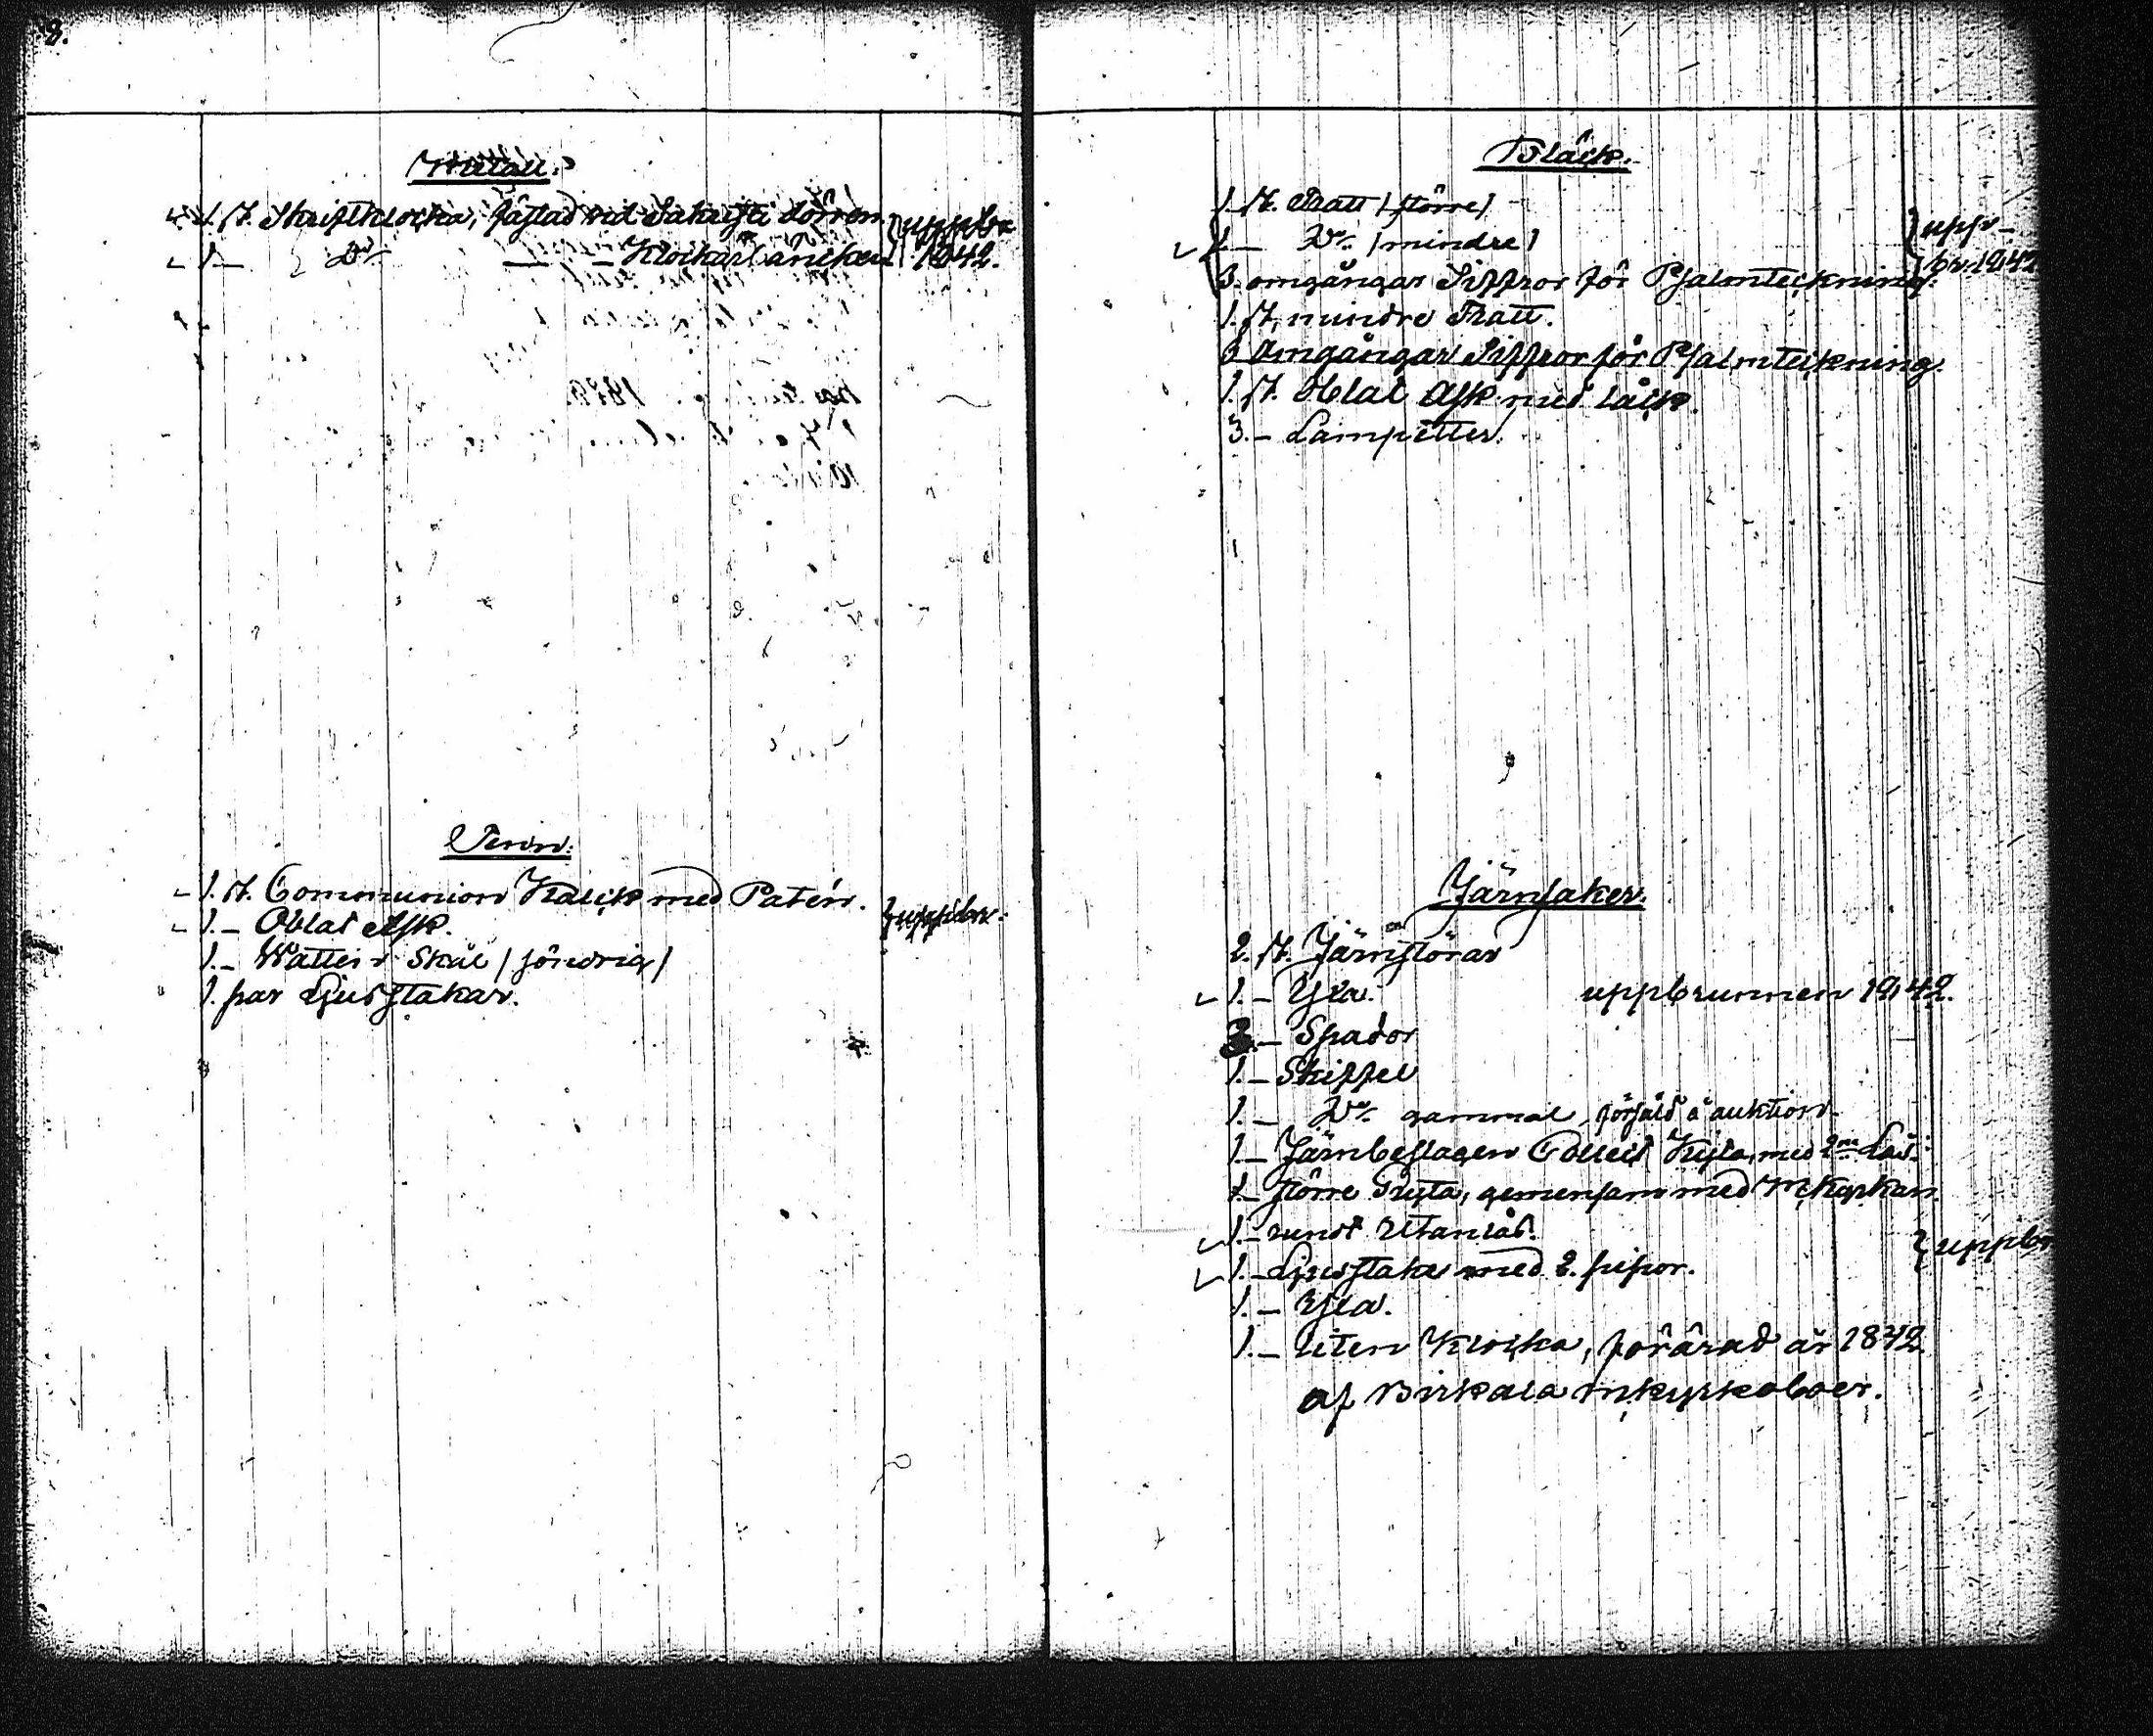 8.
Metall.
1. st. Skriftklocka, fästad vid Sakristi dörren. } uppbr.
1.— D:o — — Klockarbänken } 1842.
Tenn.
1. st. Communion Kalck med Patén. } uppbr.
1.— Oblat Ask.
1.— Watten Skål /söndrig/
1. par Ljusstakar.
Bläck.
1. st. Tratt /större/ } upp-
1— D:o /mindre/ } br. 1842
3. omgångar Siffror för Psalmteckning.
1. st. mindre Tratt.
3 Omgångar Siffror för Psalmteckning.
1. st. Oblat Ask med låck.
3.— Lampetter.
Järnsaker.
2. st. Järnstörar
1.— Yxa. uppbrunnen 1842.
3.— Spador
1.— Skiffel
1.— D:o gammal, försåld å auktion.
1.— Järnbeslagen Collect Kista, med 2ne Lås.
1.— större Gryta, gemensam med Mkyrkan.
1.— rundt Utanlås. } uppbr
1.— Ljusstake med 2. pipor.
1.— Yxa.
1.— liten Klocka, förärad år 1842
af Birkala mkyrkoboer.